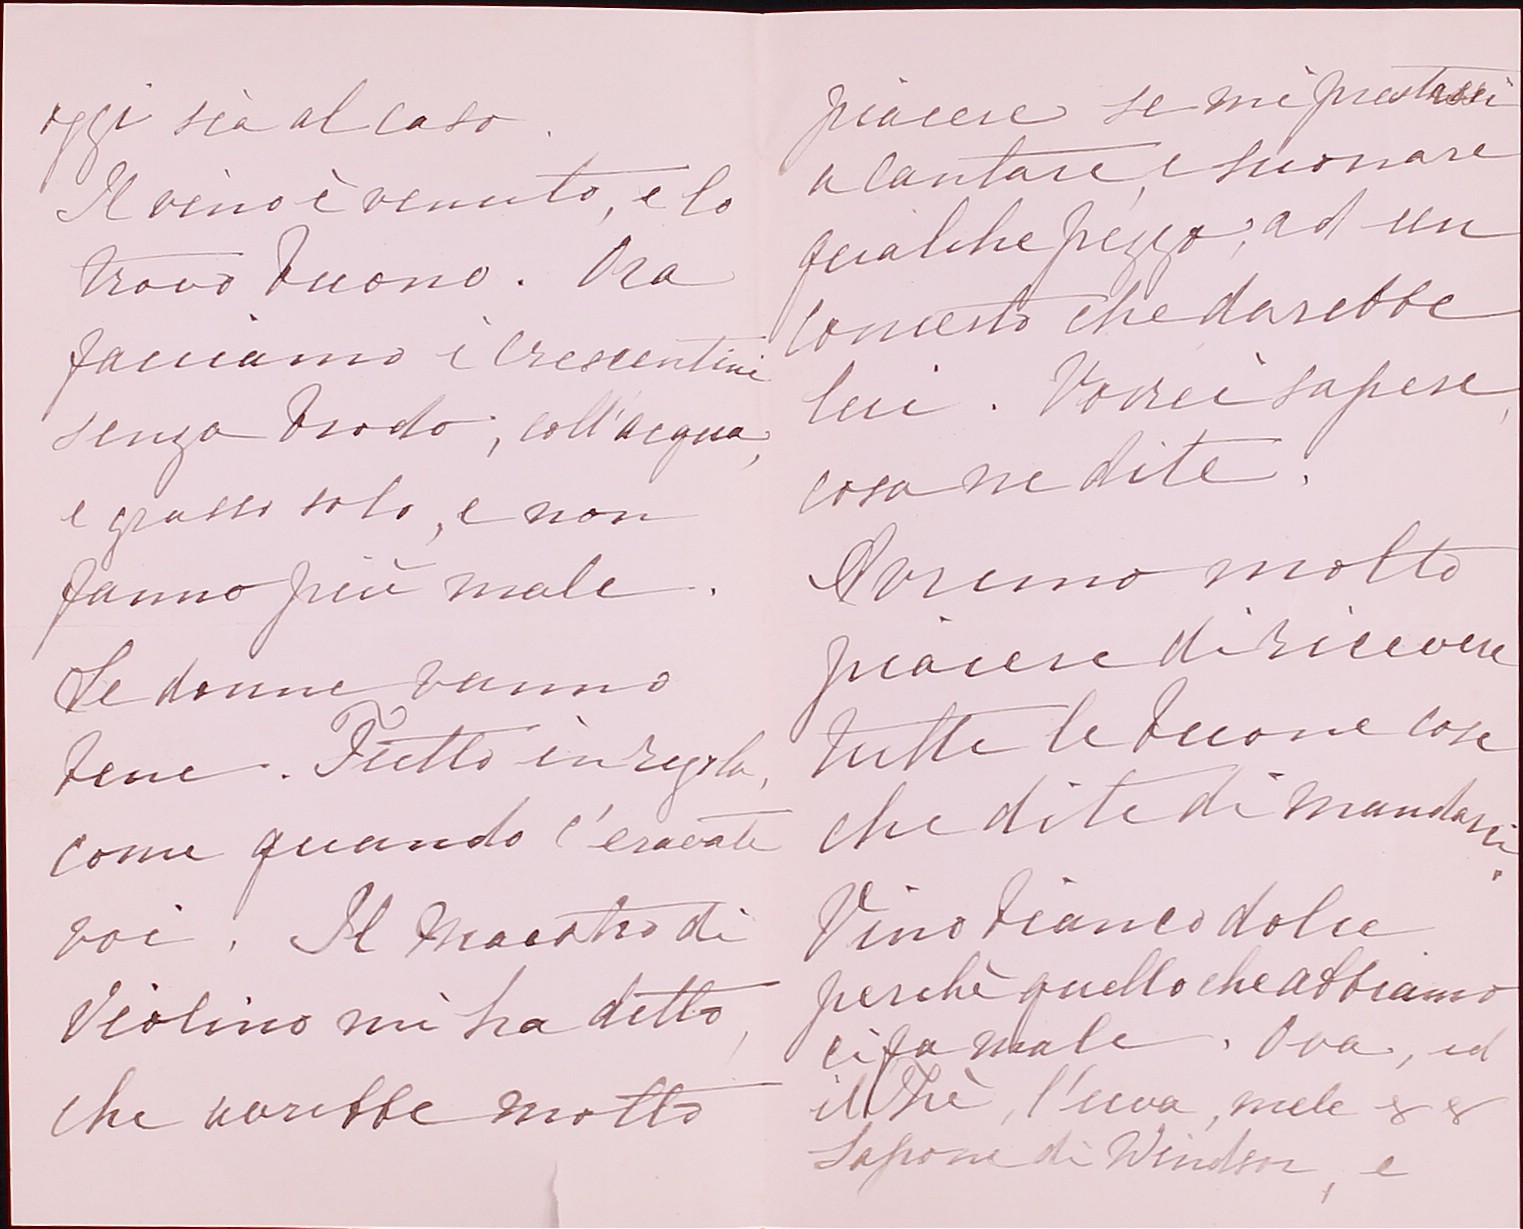 oggi sia al caso.
Il vino è venuto, e lo
trovo buono. Ora
facciamo i crescentini
senza brodo, coll'acqua,
e grasso solo, e non
fanno più male.
Le donne vanno
bene. Tutto in regola,
come quando c'eravate
voi. Il Maestro di
Violino mi ha detto,
che avrebbe molto
piacere se mi prestassi
a cantare, e suonare
qualche pezzo, ad un
concerto che darebbe
lui. Vorrei sapere,
cosa ne dite.
Avremo molto
piacere di ricevere
tutte le buone cose
che dite di mandarci.
Vino bianco dolce
perchè quello che abbiamo
ci fa male. Ova, ed
il Thè, l'uva, mele & &
Sapone di Windsor, e